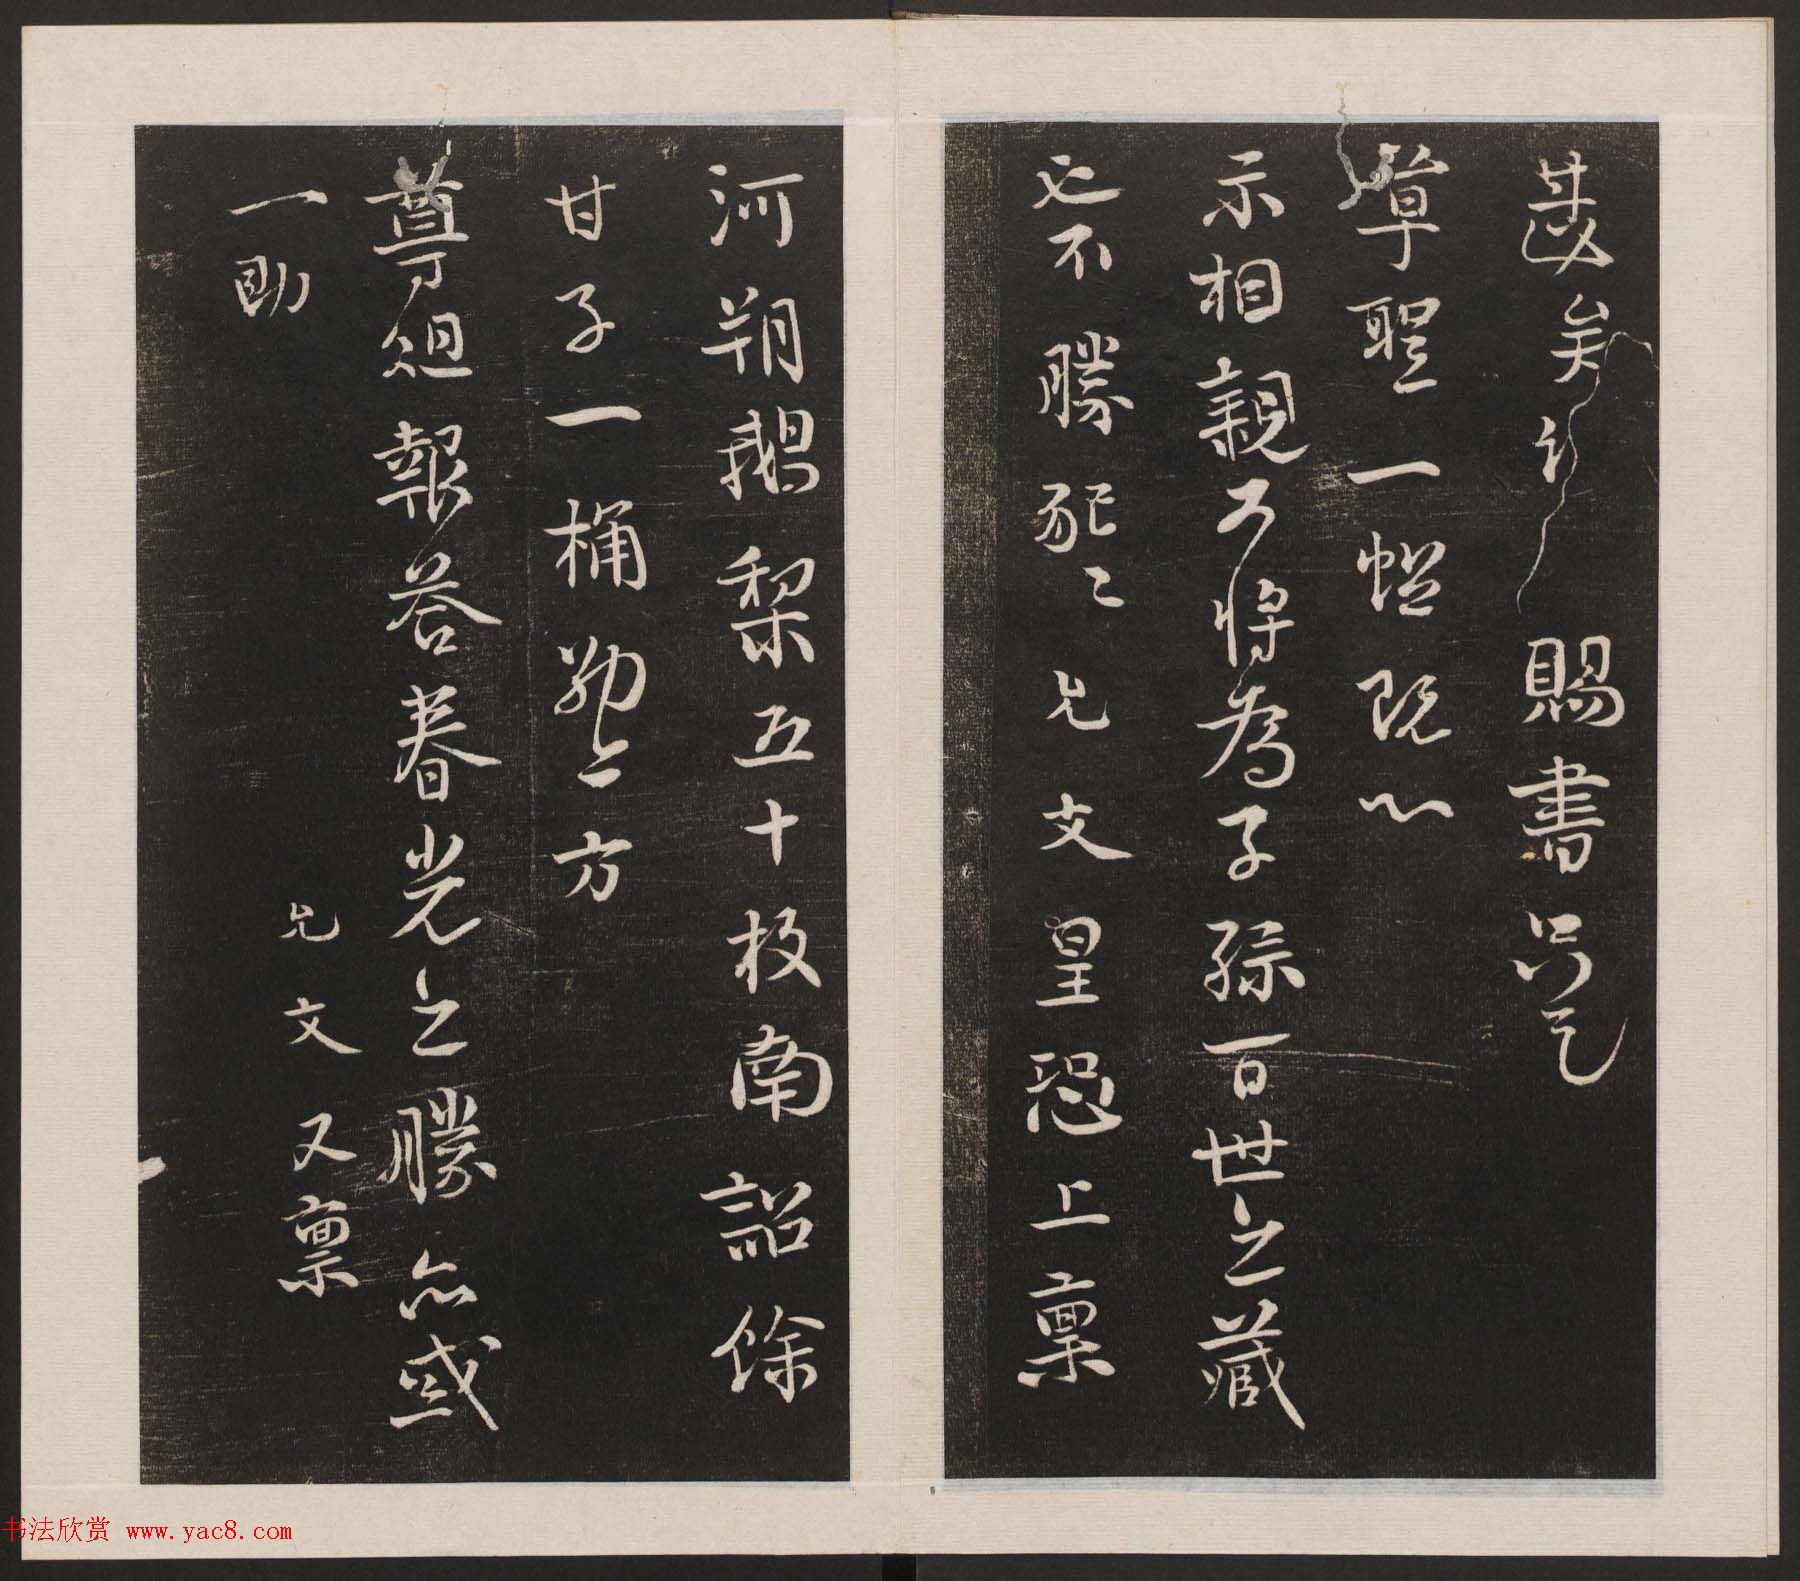 甚矣 賜書只乞
草聖一幅既以
示相親將為子孫百世之藏
不勝允文皇恐上稟
河朔鵝梨五十枚南詔餘
甘子一桶方
尊俎報答春光之勝亦或
一助
允文又稟
书法欣赏 www.yac8.com